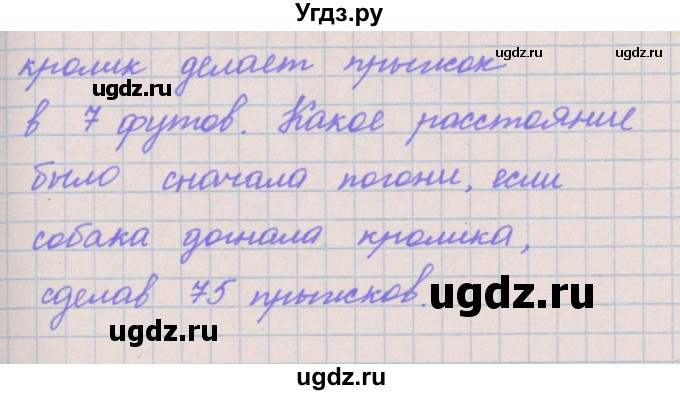 Угдз.ру
кролик делает прыжок
в 7 футов. Какое расстояние
было сначала погони, если
собака догнала кролика,
сделав 75 прыжков.
ugdz.ru
ugdz.ru
ugdz.ru
ugdz.ru
ugdz.ru
ugdz.ru
ugdz.ru